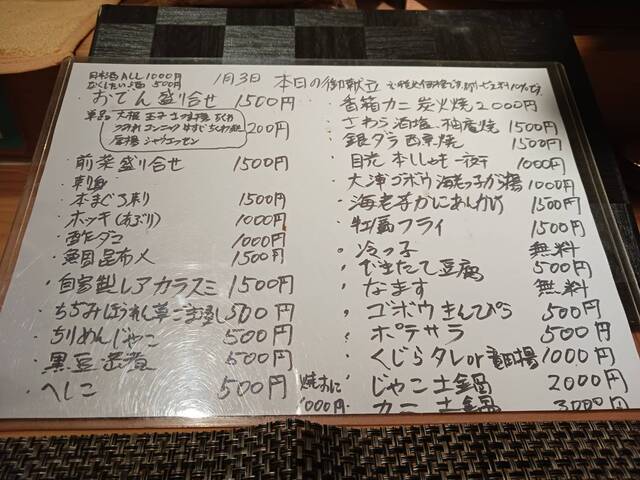 日本酒ALL 1000円
1月3日 本日の御献立
おでん盛り合せ 1500円
大根 玉子 さつま揚 ちくわ
つみれ コンニャク 牛すじ ちくわぶ
厚揚 シャウエッセン
200円
前菜盛り合せ 1500円
・刺身
・本まぐろ刺り 1500円
・ホッキ(あぶり) 1000円
・酢ダコ 1000円
・魚昆布〆 1500円
・自家製レアカラスミ 1500円
・ちぢみほうれん草ごま浸し 500円
・ちりめんじゃこ 500円
・黒豆蜜煮 500円
・へしこ 500円
・香箱カニ 炭火焼 2000円
・さわら酒塩・柚庵焼 1500円
・銀ダラ西京焼 1500円
・目光 本ししゃも 一夜干 1000円
・大浦ゴボウ 海老っ子から揚 1000円
・海老芋かにあんかけ 1500円
・牡蠣フライ 1500円
・冷っ子 無料
・できたて豆腐 500円
・なます 無料
・ゴボウきんぴら 500円
・ポテサラ 500円
・くじらタレor竜田揚 1000円
・じゃこ土鍋 2000円
・カニ土鍋 3000円
焼おに
1000円